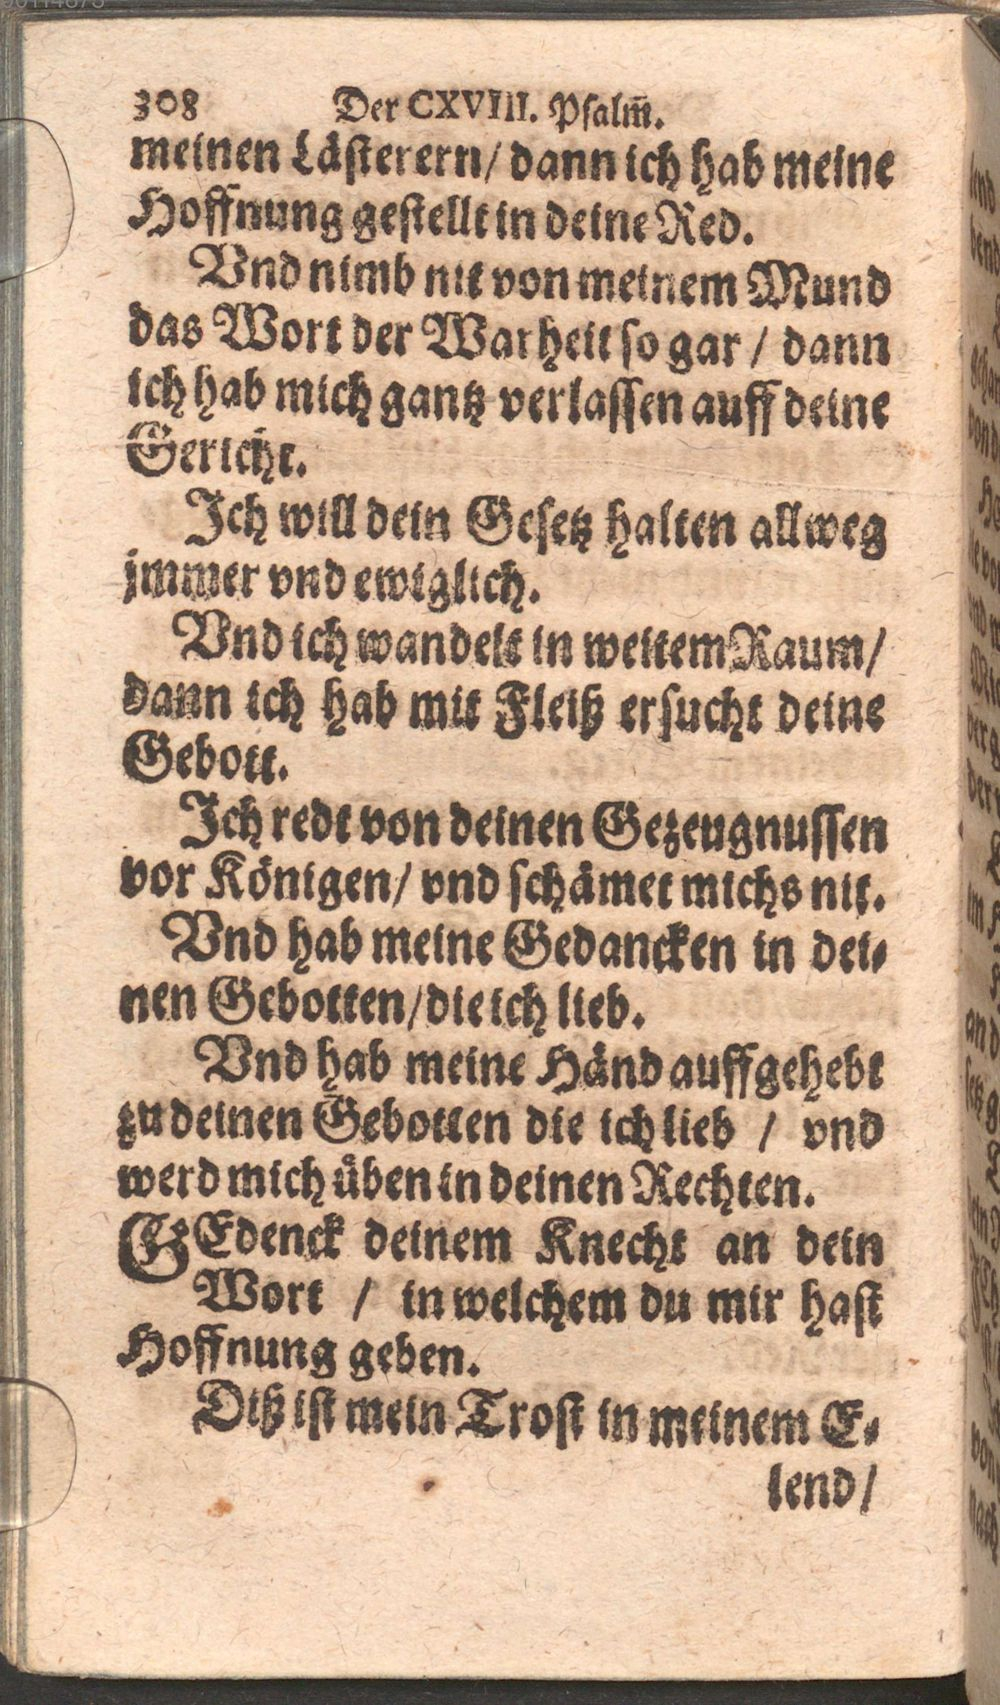 308 Der CXVIII. Psalm̃.
meinen Lästerern/ dann ich hab meine
Hoffnung gestellt in deine Red.
Vnd nimb nit von meinem Mund
das Wort der Warheit so gar / dann
ich hab mich gantz verlassen auff deine
Gericht.
Ich will dein Gesetz halten allweg
jmmer vnd ewiglich.
Vnd ich wandelt in weitem Raum/
dann ich hab mit Fleiß ersucht deine
Gebott.
Ich redt von deinen Gezeugnussen
vor Königen/ vnd schämet michs nit.
Vnd hab meine Gedancken in dei⸗
nen Gebotten/ die ich lieb.
Vnd hab meine Händ auffgehebt
zu deinen Gebotten die ich lieb / vnd
werd mich uͤben in deinen Rechten.
GEdenck deinem Knecht an dein
Wort / in welchem du mir hast
Hoffnung geben.
Diß ist mein Trost in meinem E⸗
lend/